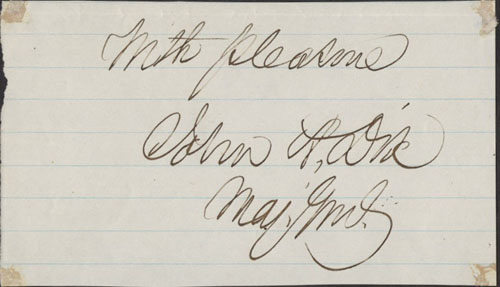 With pleasure
John A. Dix
Maj. Genl.